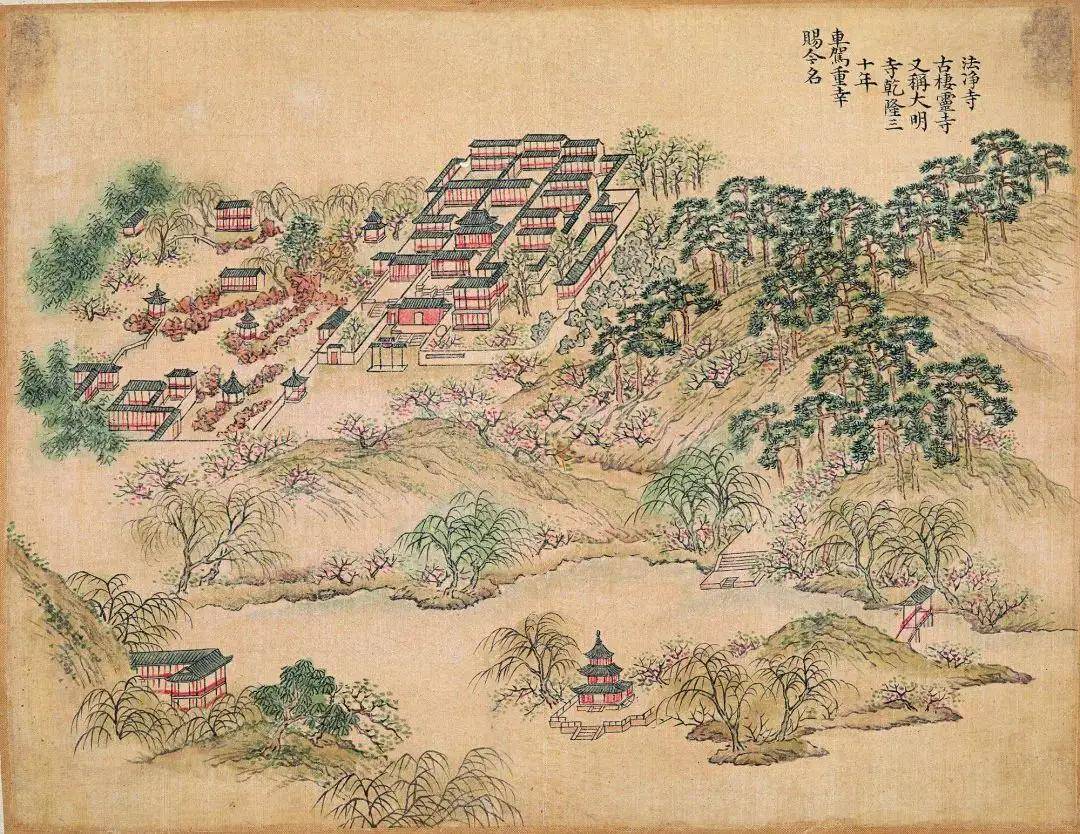 法净寺
古棲靈寺
又稱大明
寺乾隆三
十年
車駕重幸
賜今名